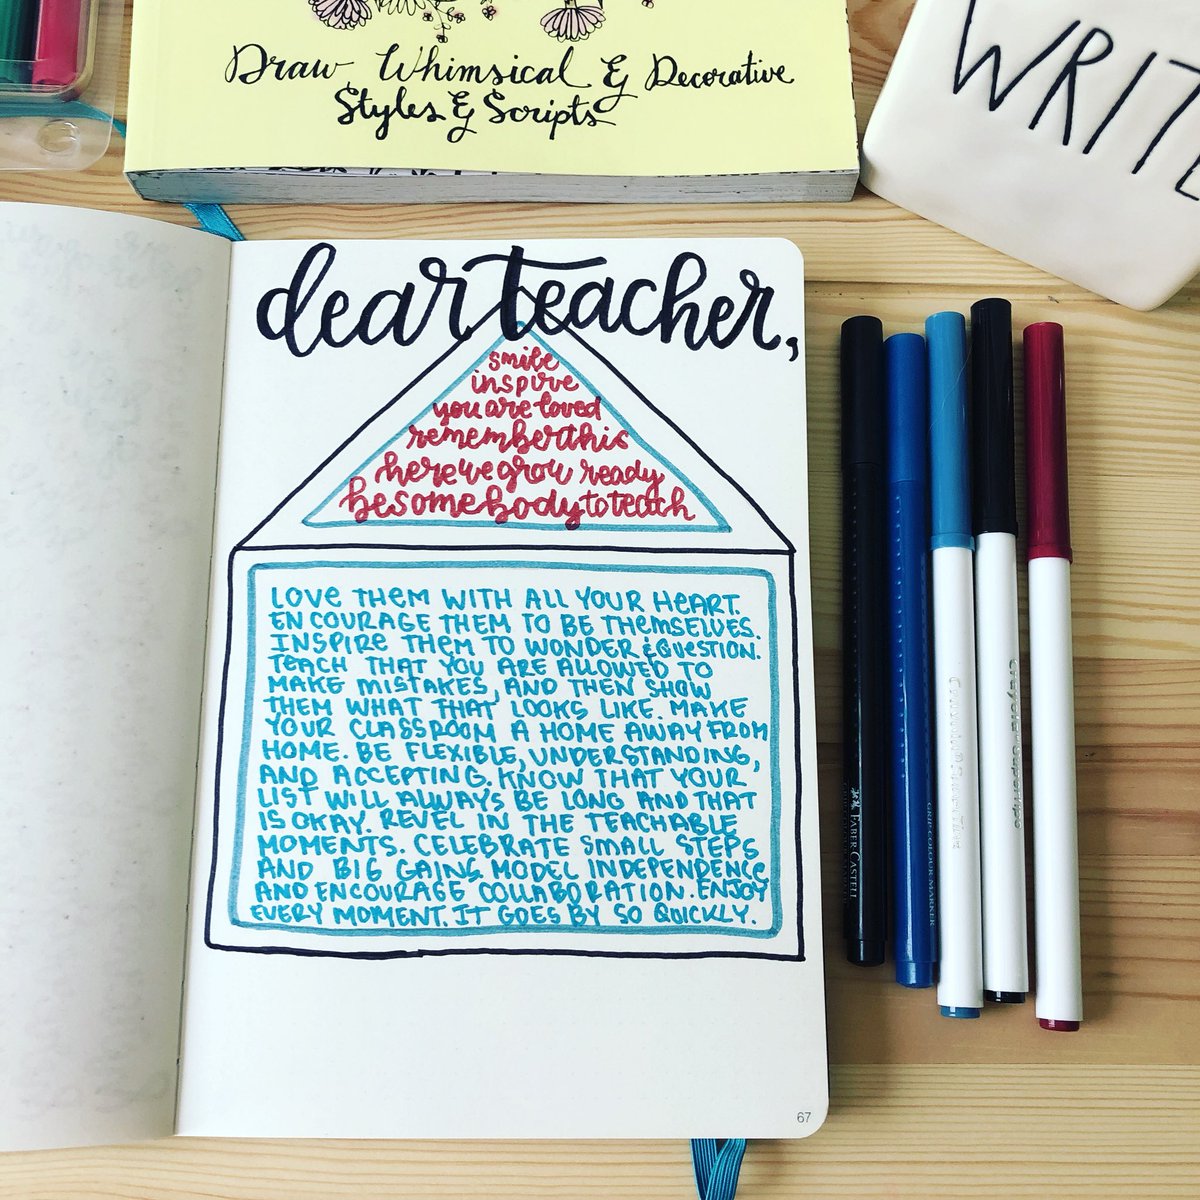 Draw Whimsical & Decorative
Styles & Scripts
WRITE
dear teacher,
smile
inspire
you are loved
remember this
here we grow ready
be somebody to teach
LOVE THEM WITH ALL YOUR HEART.
ENCOURAGE THEM TO BE THEMSELVES.
INSPIRE THEM TO WONDER & QUESTION.
TEACH THAT YOU ARE ALLOWED TO
MAKE MISTAKES, AND THEN SHOW
THEM WHAT THAT LOOKS LIKE. MAKE
YOUR CLASSROOM A HOME AWAY FROM
HOME. BE FLEXIBLE, UNDERSTANDING,
AND ACCEPTING. KNOW THAT YOUR
LIST WILL ALWAYS BE LONG AND THAT
IS OKAY. REVEL IN THE TEACHABLE
MOMENTS. CELEBRATE SMALL STEPS
AND BIG GAINS. MODEL INDEPENDENCE
AND ENCOURAGE COLLABORATION. ENJOY
EVERY MOMENT. IT GOES BY SO QUICKLY.
67
FABER CASTELL
GRIP COLOUR MARKER
Crayola SuperTips